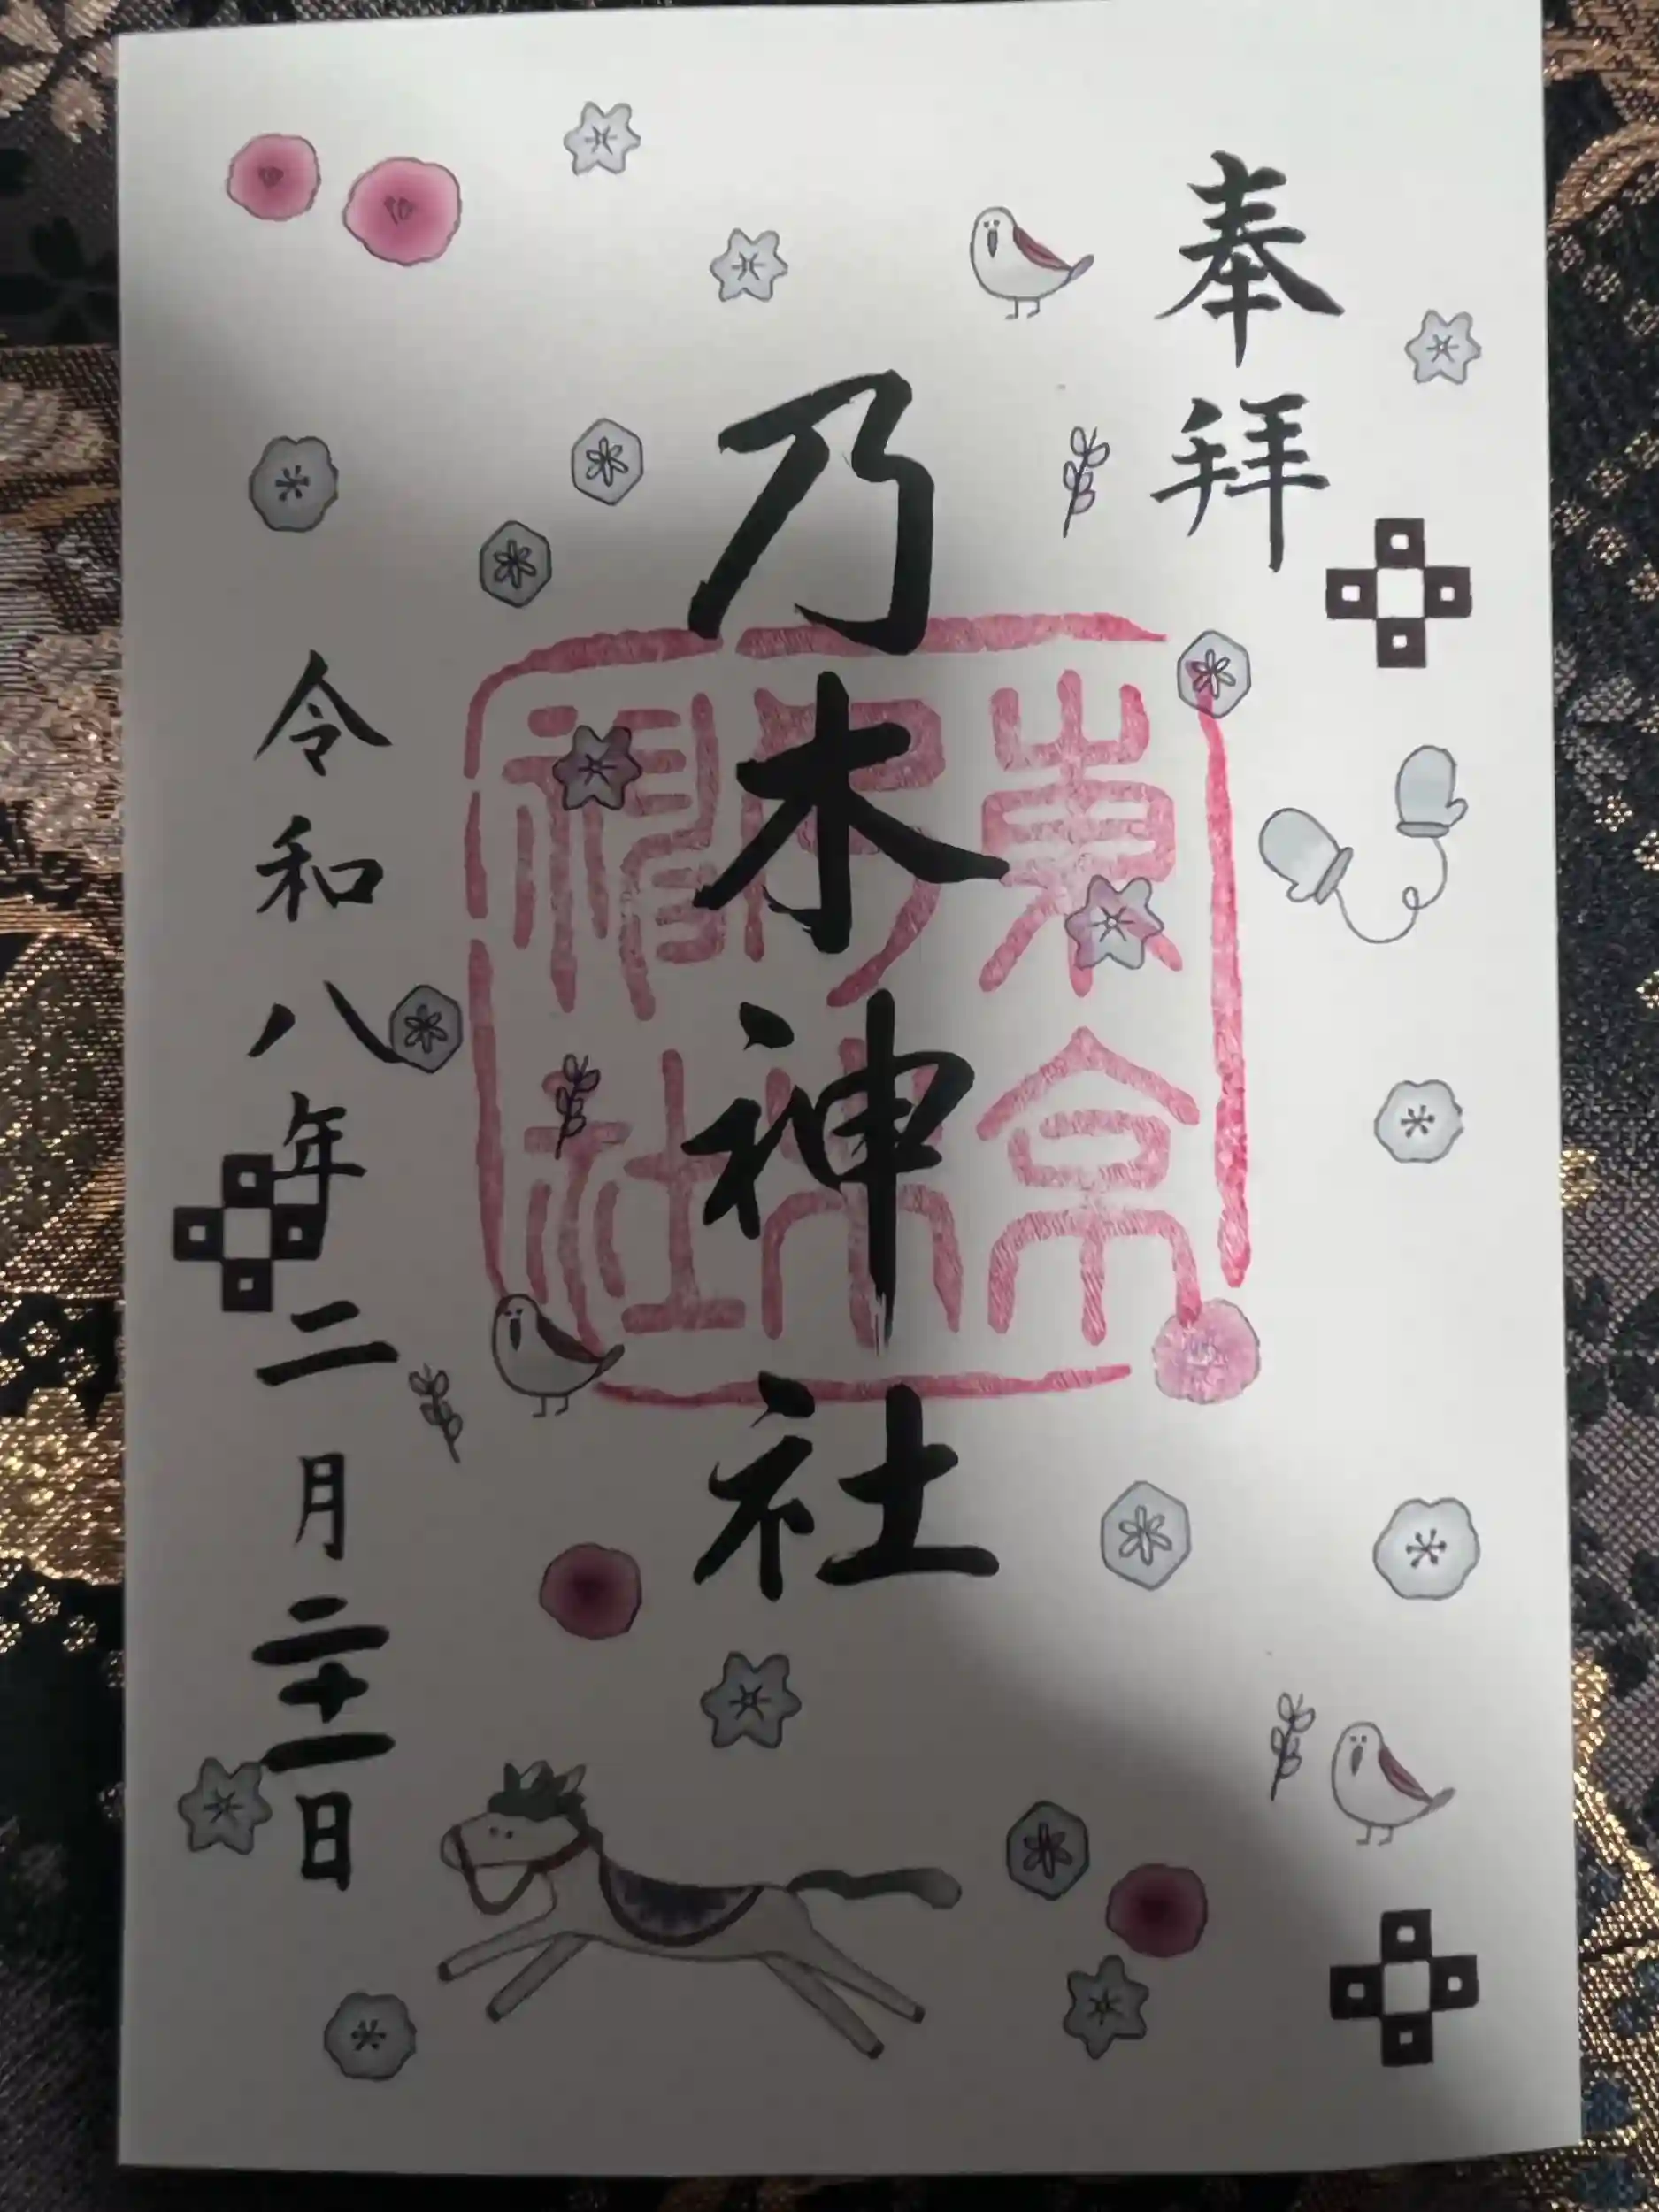 奉拝
乃木神社
東京乃木神社
令和八年二月二十一日